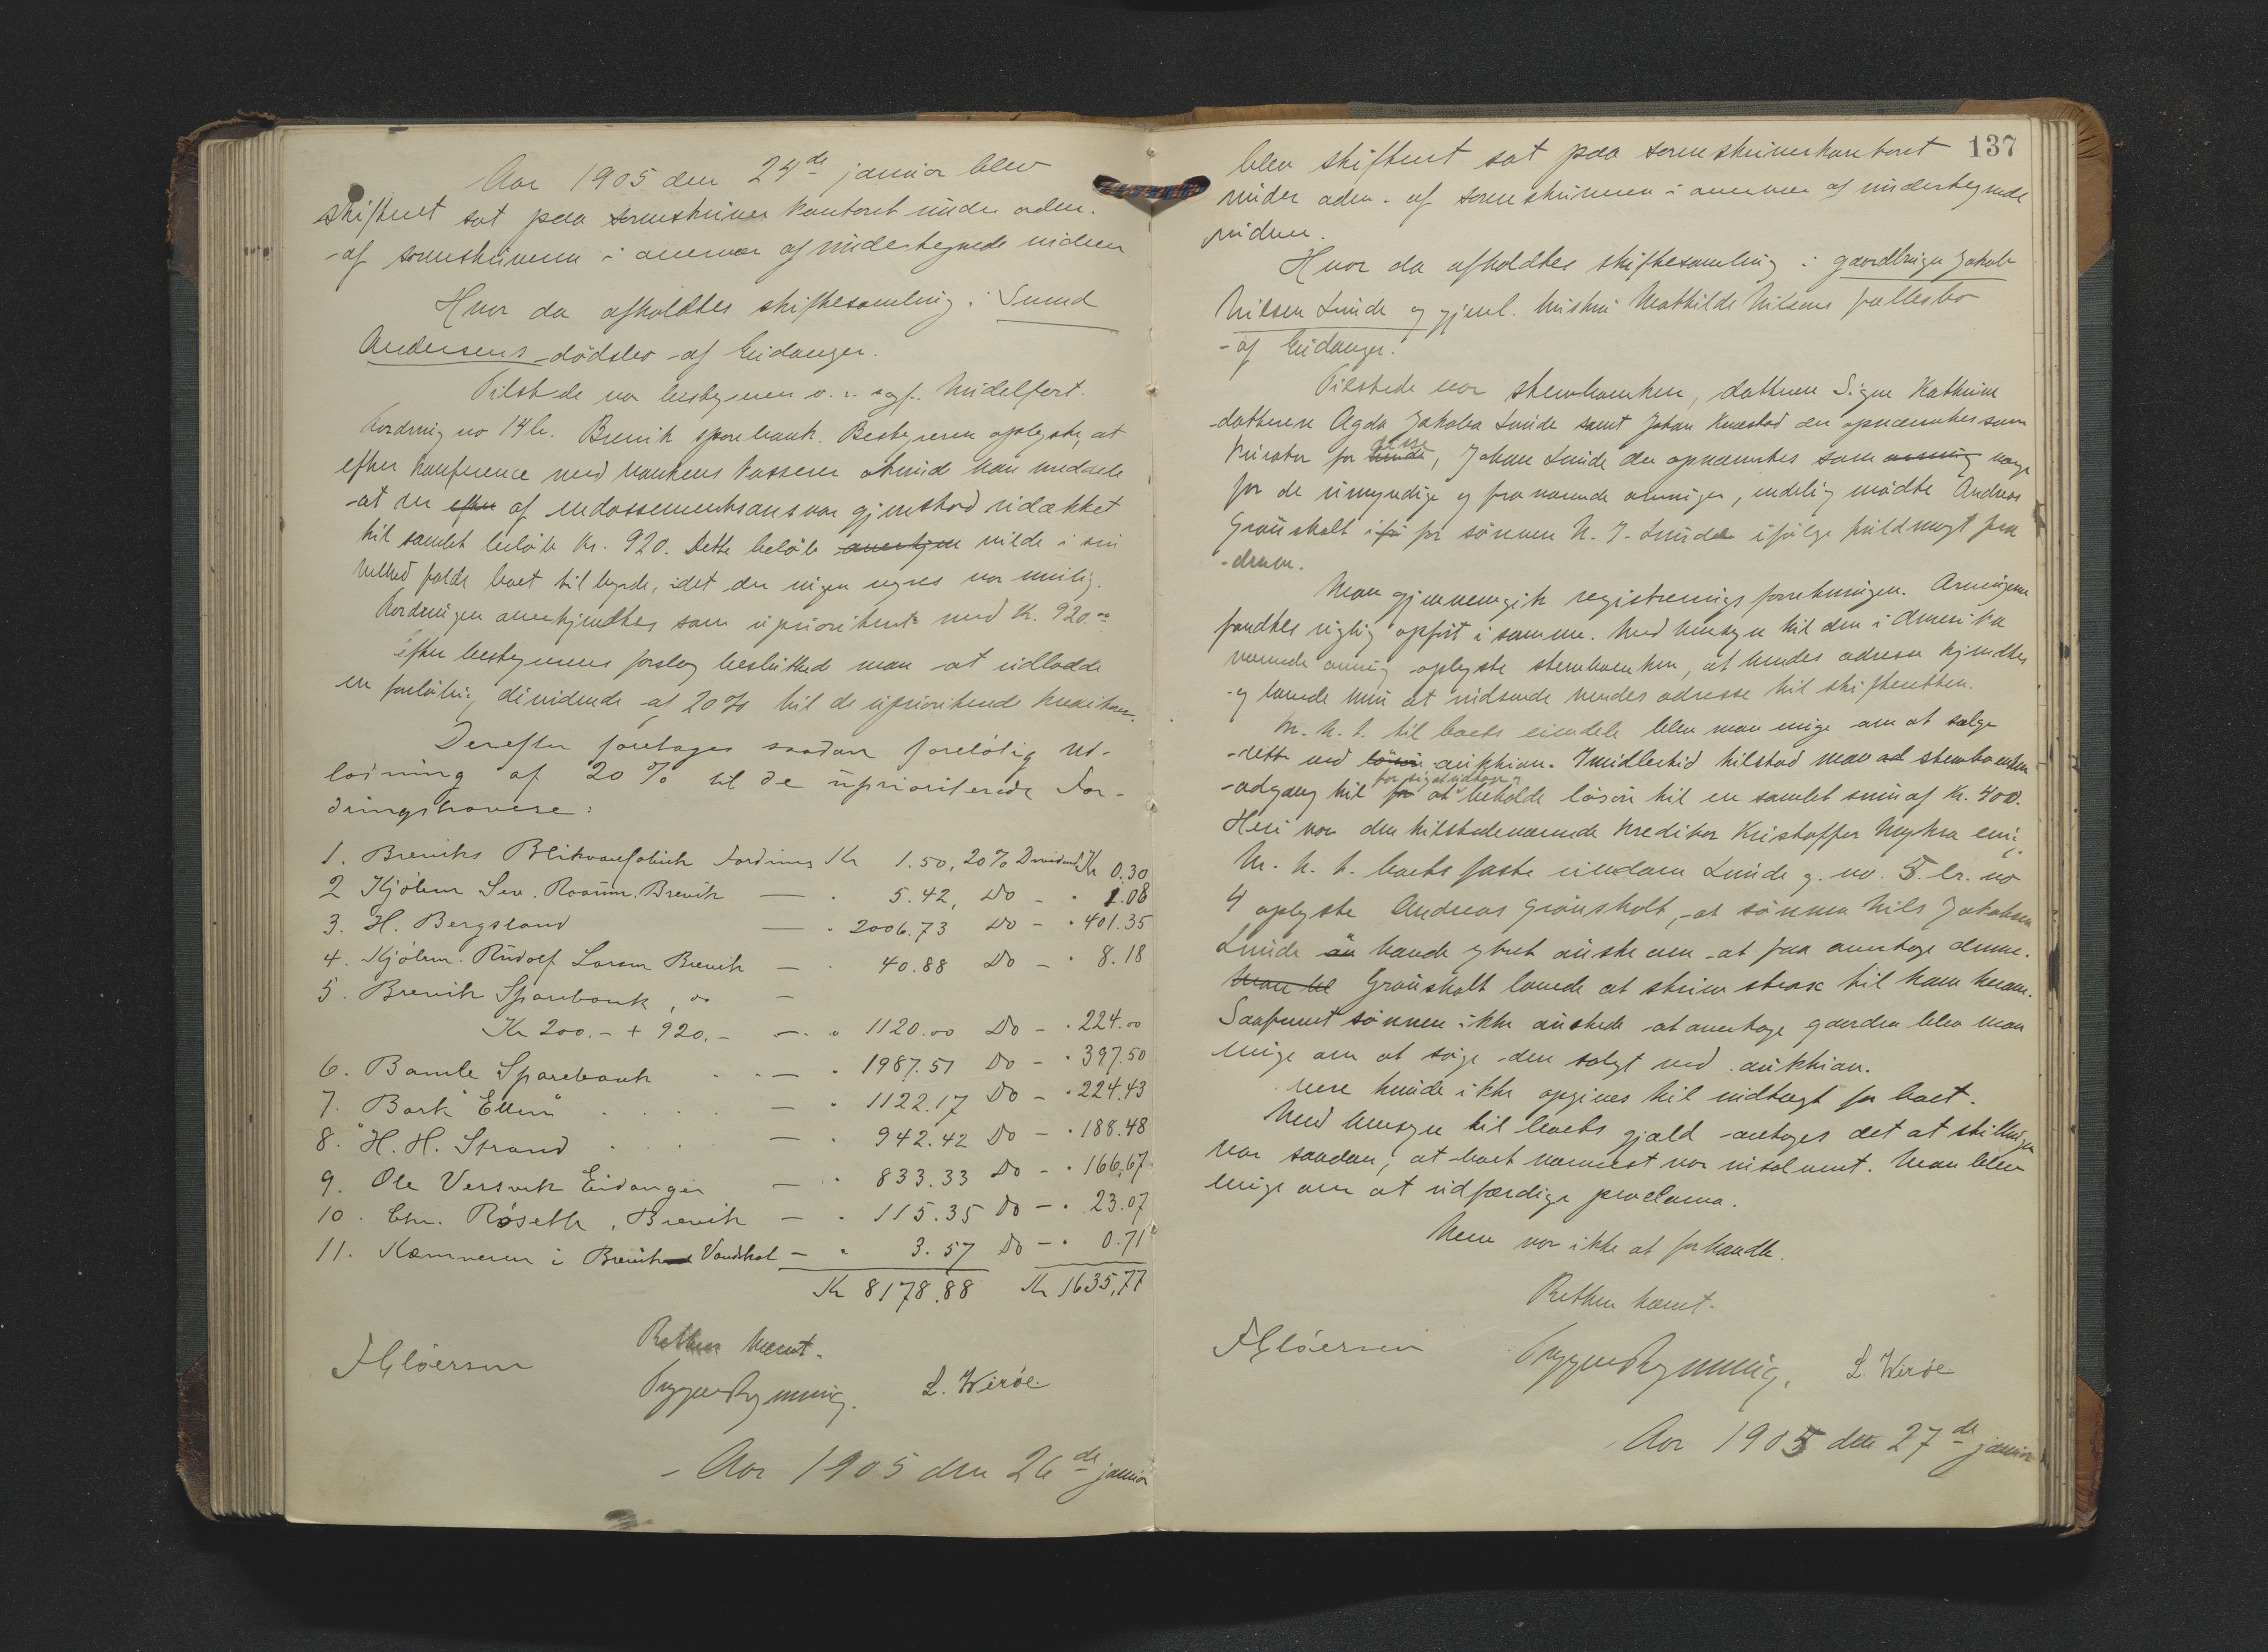 Aar 1905 den 24de januar blev
skifteret sat paa sorenskriver kontoret under adm.
af sorenskriveren i overvær af undertegnede vidner
Hvor da afholdtes skiftesamling i Svend
Andersens dödsbo af Eidanger.
Tilstede var bestyreren o.r. sagf. Midelfart.
Fordring no 14 b. Brevik sparebank. Bestyreren oplyste, at
efter konference med bankens kasserer kunde han meddele
at der efter af endossementsansvar gjenstod udækket
til samlet belöb Kr. 920. Dette beløb anerkjen vilde i sin
helhed falde boet til byrde, idet der ingen regres var mulig.
Fordringen anerkjendtes som uprioritert med Kr. 920.00
Efter bestyrerens forslag besluttede man at udlodde
en foreløbig dividende af 20% til de uprioriterede kreditorer.
Derefter foretages saadan foreløbig ud-
lodning af 20% til de uprioriterede For-
dringshavere:
1. Breviks Blikvarefabrik Fordring Kr 1.50, 20% Dividende Kr 0.30
2 Kjöbm Sev. Roarum. Brevik — " 5.42, Do - " 1.08
3. H. Bergsland — " 2006.73 Do - " 401.35
4. Kjöbm. Rudolf Larsen Brevik — " 40.88 Do - " 8.18
5. Brevik Sparebank, do —
Kr 200.- + 920.- — " 1120.00 Do - " 224.00
6. Bamle Sparebank — " 1987.51 Do - " 397.50
7. Bark "Ellen" — " 1122.17 Do - " 224.43
8. "H. H. Strand — " 942.42 Do - " 188.48
9. Ole Versvik Eidanger — " 833.33 Do - " 166.67
10. Chr. Røseth, Brevik — " 115.35 Do - " 23.07
11. Kæmneren i Brevik Vandskat — " 3.57 Do - " 0.71
Kr 8178.88 Kr 1635,77
Retten hævet.
FGlöersen
Trygve Rynning. L. Werøe
Aar 1905 den 26de januar
137
blev skifteret sat paa sorenskriverkontoret
under adm. af sorenskriveren i overvær af undertegnede
vidner.
Hvor da afholdtes skiftesamling i gaardbruger Jakob
Nilsen Lunde og gjenl. hustru Mathilde Nilsens fællesbo
af Eidanger.
Tilstede var stervboenken, datteren Signe Kathrine
datteren Agda Jakoba Lunde samt Johan der opnævntes som
kurator for hende disse, Johan Lunde der opnævntes som arving værge
for de umyndige og fraværende arvinger, endelig mødte Andreas
Grönsholt i fu for sönnen N. J. Lunde ifølge fuldmagt fra
denne.
Man gjennemgik registreringsforretningen. Arvingerne
fandtes rigtig opført i samme. Med hensyn til den i Amerika
værende arving oplyste stervboenken, at hendes adresse kjendtes
og lovede hun at indsende hendes adresse til skifteretten.
M. h. t. boets eiendele blev man enige om at sælge
dette ved løsøre auktion. Imidlertid tilstod man at stervboenken
adgang til for at beholde løsøre til en samlet sum af Kr. 400.
Heri var den tilstedeværende kreditor Kristoffer enig.
M. h. t. boets faste eiendom Lunde g. no. 5. br. no
4 oplyste Andreas Grönsholt, at sönnen Nils Jakobsen
Lunde havde ytret ønske om at faa overtage denne.
Man bl Grönsholt lovede at skrive strax til ham herom.
Saafremt sönnen ikke önskede at overtage gaarden blev man
enige om at søge den solgt ved auktion.
Mere kunde ikke opgives til indtægt for boet.
Med hensyn til boets gjæld antoges det at stillingen
var saadan, at boet nærmest var insolvent. Man blev
enige om at udfærdige proclama.
Mere var ikke at forhandle.
Retten hævet.
FGlöersen
Trygve Rynning. L. Werøe
Aar 1905 den 27de januar